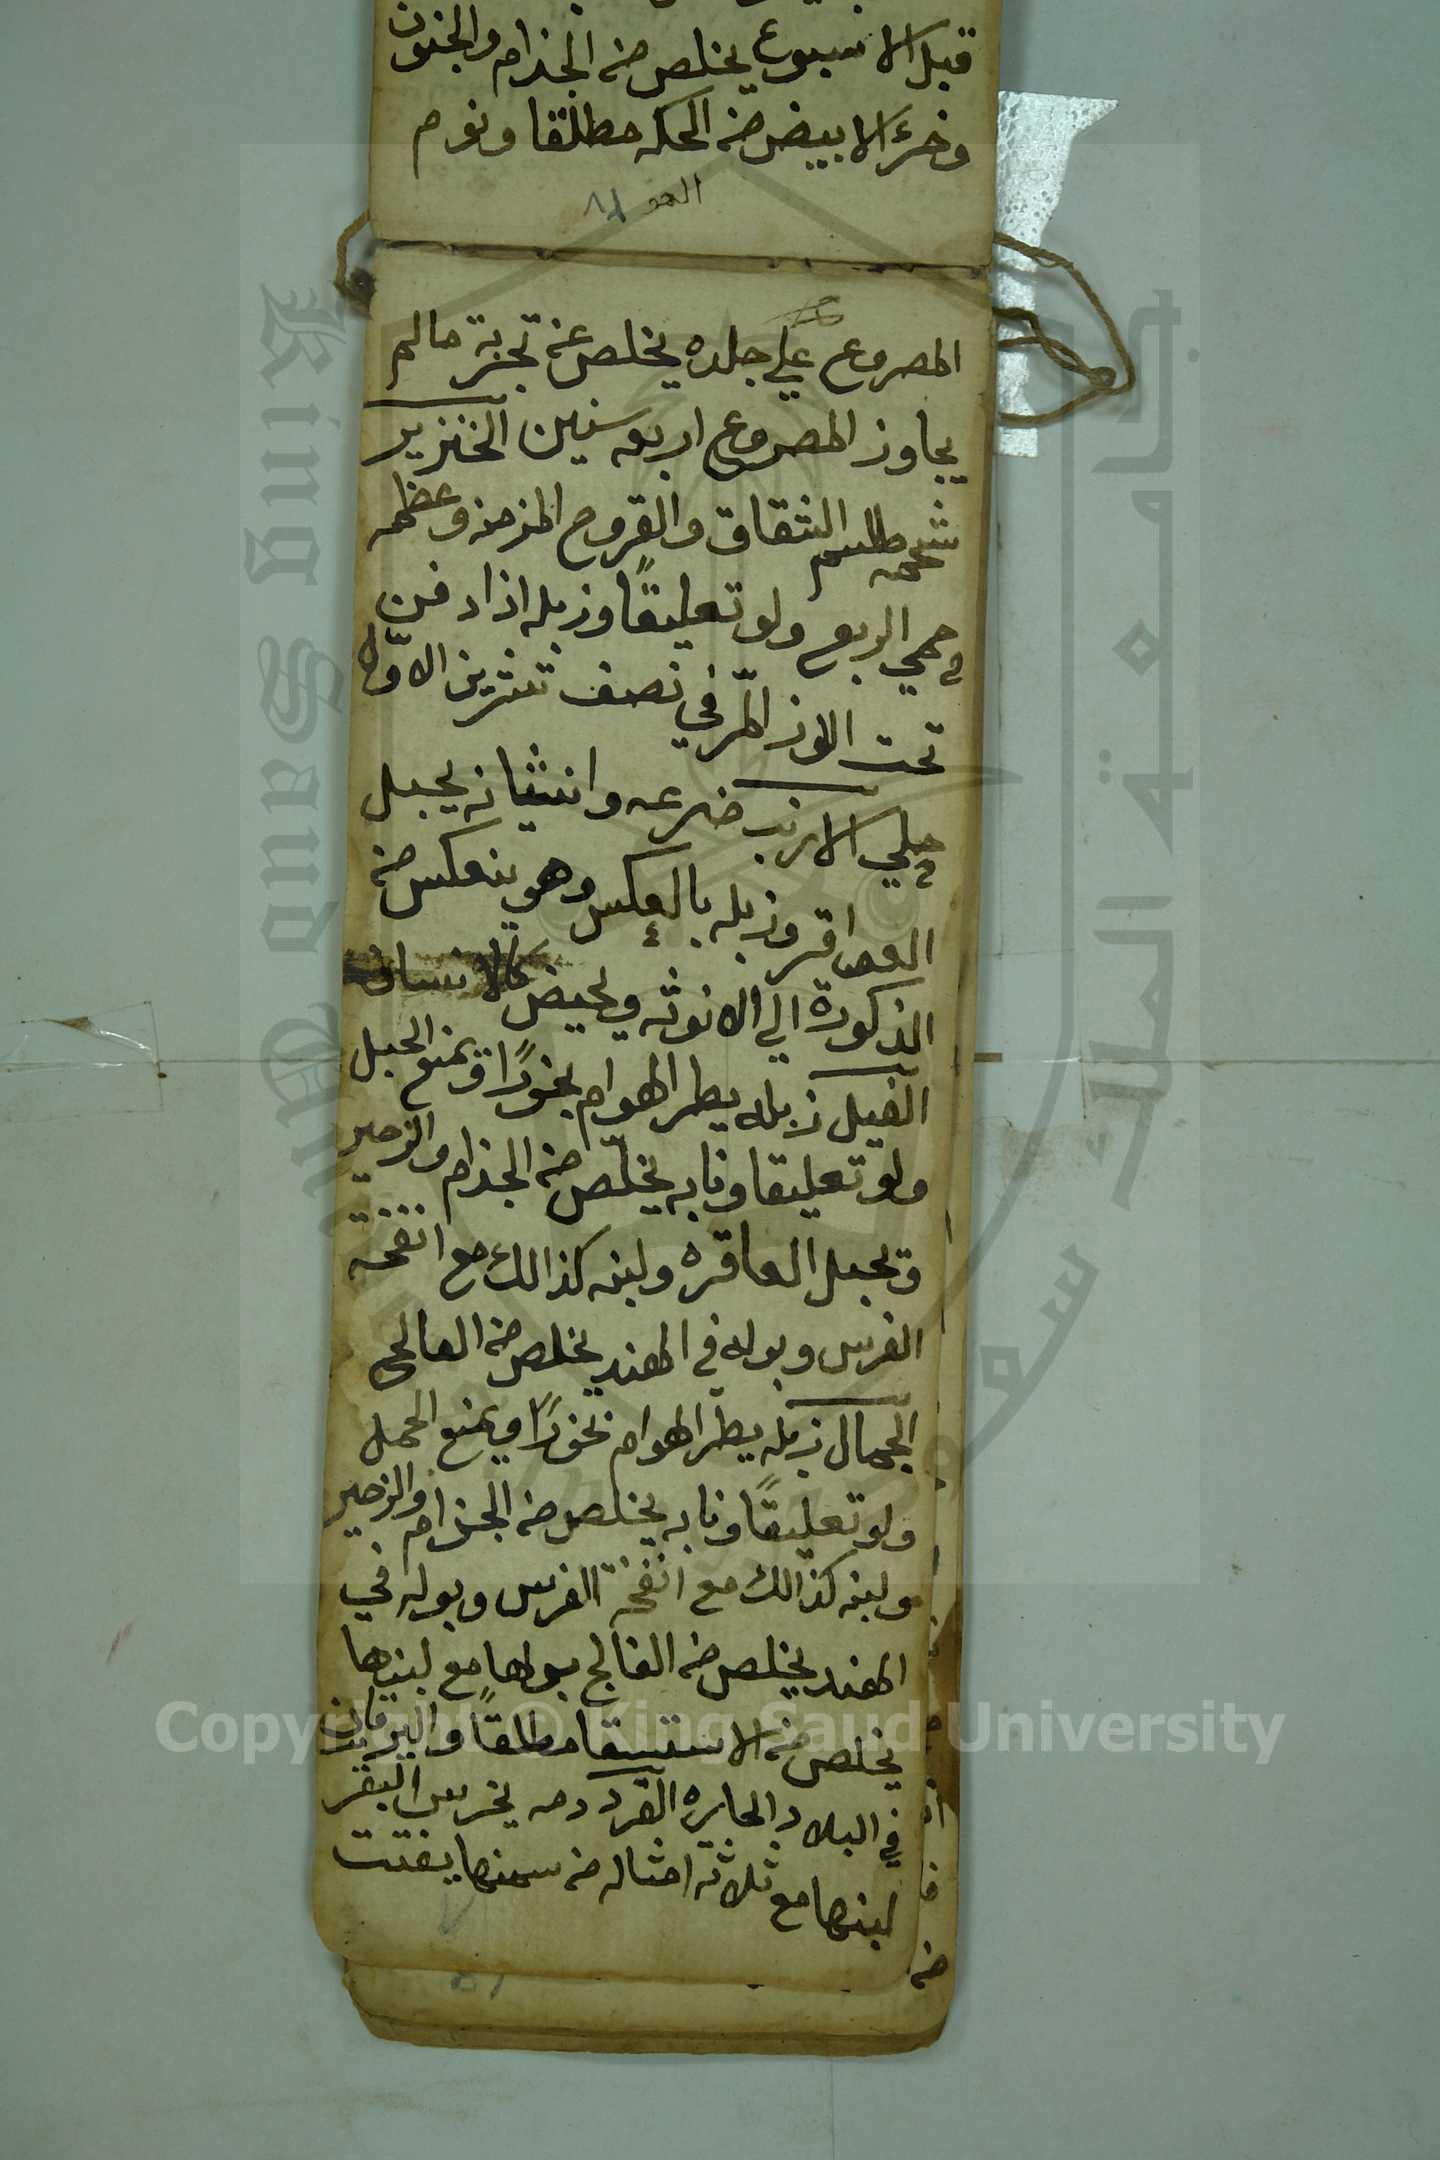 قبل الاسبوع يخلص من الجذام والجنون
وخرء الابيض من الحكه مطلقا ونوم
المصروع علي جلده يخلص عن تجربة مالم
يجاوز المصروع اربعه سنين الخنزير
شحمه طلسم الشقاق والقروح المزمنه وعظمه
في حمي الربع ولو تعليقًا وزبله اذا دفن
تحت اللوز المّر في نصف تشرين الاوّل
حلي الارنب ضرعه وانثيانه يحبل
العواقر وزبله بالعكس وهو ينعكس من
الذكورة الي الانوثه ويحيض كالانسان
الفيل زبله يطر الهوام بخورًا ويمنع الحبل
ولو تعليقا ونابه يخلّص من الجذام والزحير
ويحبل العاقره ولبنه كذالك مع انفخة
الفرس وبوله في الهند يخلص من الفالج
الجمال زبله يطر الهوام بخورًا ويمنع الحمل
ولو تعليقًا ونابه يخلص من الجذام والزحير
ولبنه كذالك مع انفخة الفرس وبوله في
الهند يخلص من الفالج بولها مع لبنها
يخلص من الاستسقا مطلقًا واليرقان
في البلاد الحاره القرد دمه يخرس البقر
لبنها مع ثلاثة امثاله من سمنها يفتت
Copyright © King Saud University
King Saud University
جامعة الملك سعود